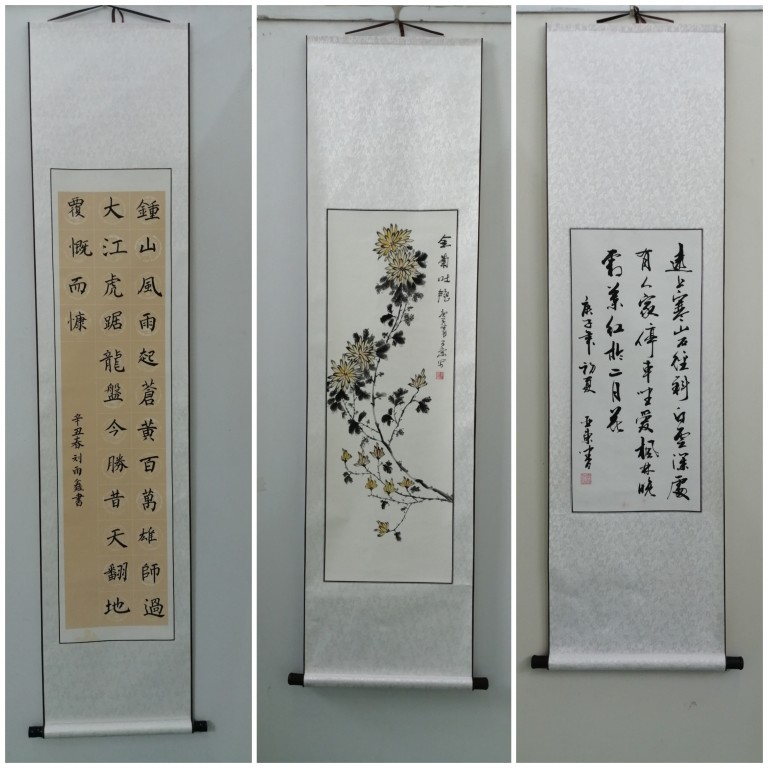 鍾山風雨起蒼黄百萬雄師過
大江虎踞龍盤今勝昔天翻地
覆慨而慷
辛丑春刘雨鑫書
金菊吐艳
遠上寒山石径斜白雲深處
有人家停車坐愛楓林晚
霜葉红於二月花
庚子年初夏